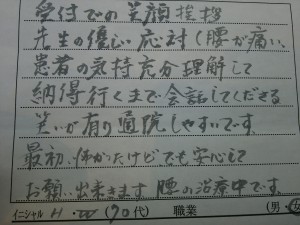 受付での笑顔挨拶
先生の優しい応対(腰が痛い、
患者の気持充分理解して
納得行くまで会話してくださる
笑いが有り通院しやすいです。
最初、怖かったけどでも安心して
お願い出来ます 腰の治療中です。
イニシャル H・W (70代) 職業 (男・女